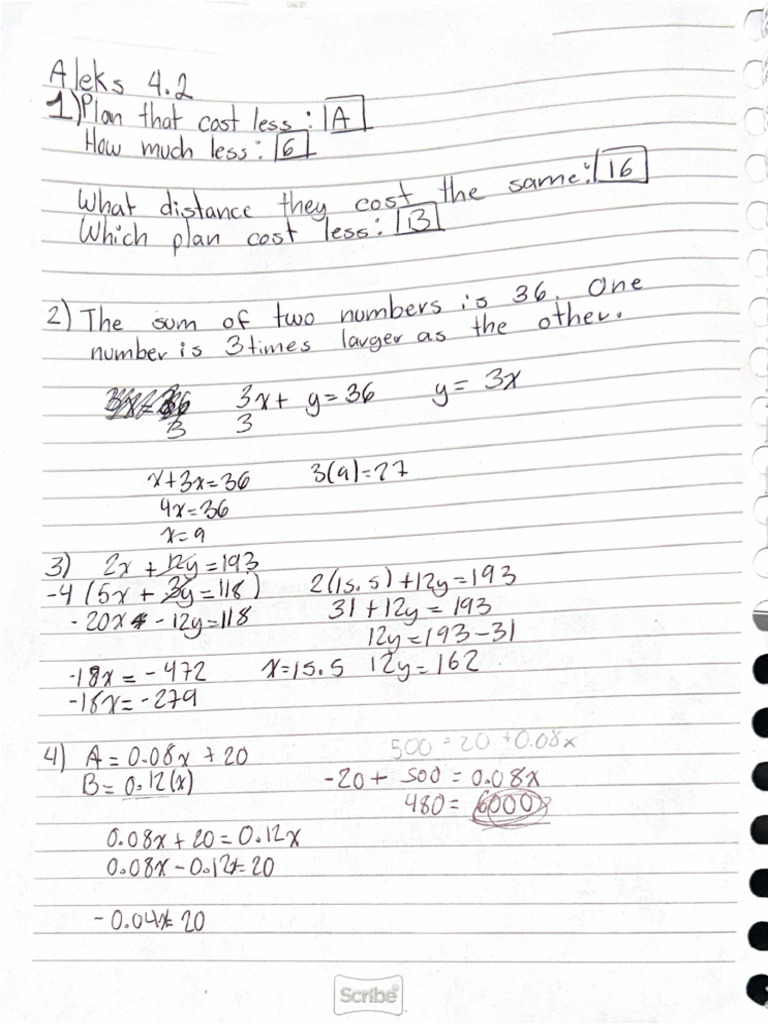 Aleks 4.2
1) Plan that cost less: A
How much less: 6
What distance they cost the same: 16
Which plan cost less: B
2) The sum of two numbers is 36. One
number is 3 times larger as the other.
3x + y = 36 y = 3x
3 3
x+3x=36 3(9)=27
4x=36
x=9
3) 2x + 12y = 193
-4 (5x + 3y = 118) 2(15.5)+12y=193
-20x - 12y=118 31 + 12y = 193
12y = 193-31
-18x = -472 x=15.5 12y= 162
-18x= -279
4) A = 0.08x + 20 500 = 20 + 0.08x
B = 0.12(x) -20 + 500 = 0.08x
480 = 6000
0.08x + 20 = 0.12x
0.08x - 0.12x=20
-0.04x= 20
Scribe